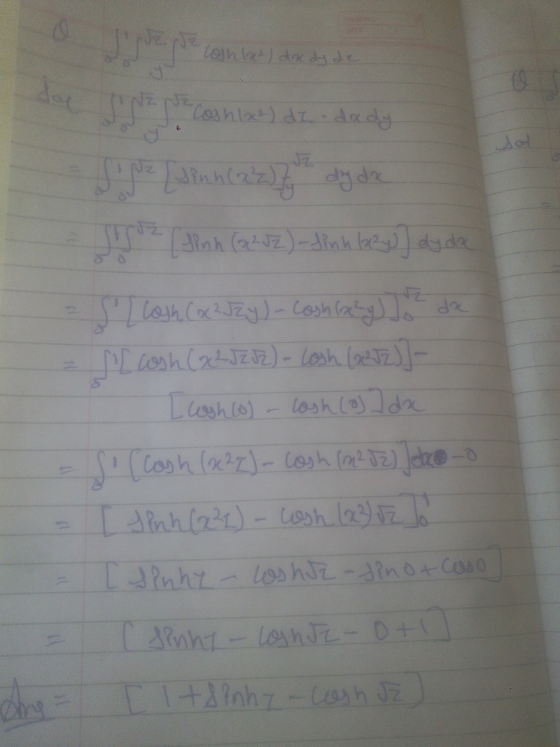 Q ∫₀¹ ∫₀^√z ∫_y^√z cosh(x²) dx dy dz
Sol ∫₀¹ ∫₀^√z ∫_y^√z cosh(x²) dz · dx dy
= ∫₀¹ ∫₀^√z [sinh(x²z)]_y^√z dy dx
= ∫₀¹ ∫₀^√z [sinh(x²√z) - sinh(x²y)] dy dx
= ∫₀¹ [cosh(x²√z y) - cosh(x²y)]₀^√z dx
= ∫₀¹ [cosh(x²√z√z) - cosh(x²√z)] -
[cosh(0) - cosh(0)] dx
= ∫₀¹ [cosh(x²z) - cosh(x²√z)] dx - 0
= [sinh(x²z) - cosh(x²)√z]₀¹
= [sinhz - cosh√z - sin0 + cos0]
= [sinhz - cosh√z - 0 + 1]
Ans = [1 + sinhz - cosh√z]
Q
Sol
=